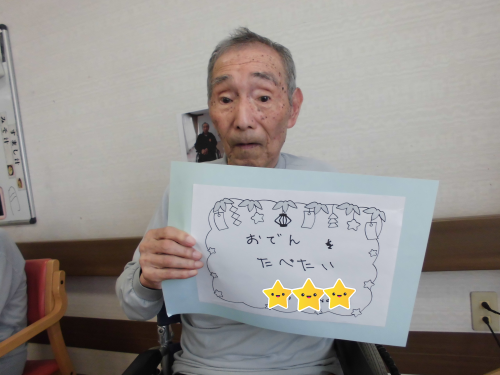 おでん を
たべたい